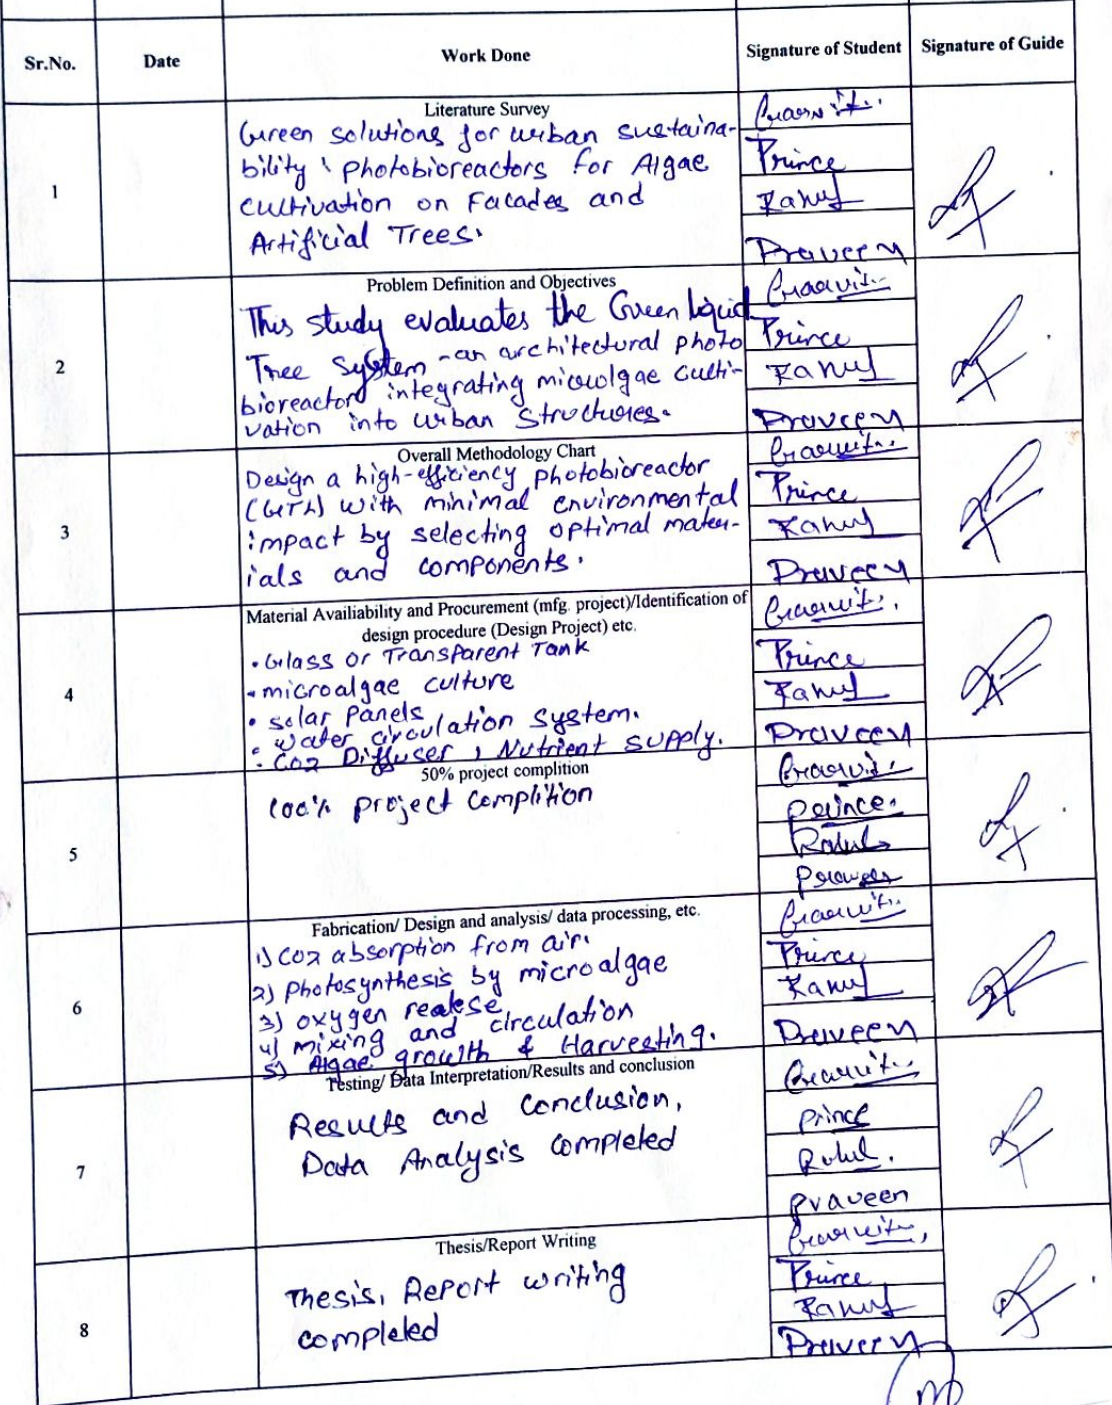 Sr.No. Date Work Done Signature of Student Signature of Guide
1
Literature Survey
Green solutions for urban sustaina-
bility : Photobioreactors for Algae
cultivation on Facades and
Artificial Trees.
Prince
Rahul
Praveen
2
Problem Definition and Objectives
This study evaluates the Green liquid
Tree System - an architectural photo
bioreactor integrating microlgae culti-
vation into urban structures.
Prince
Rahul
Praveen
3
Overall Methodology Chart
Design a high-efficiency photobioreactor
(GTL) with minimal environmental
impact by selecting optimal mater-
ials and components.
Prince
Rahul
Praveen
4
Material Availiability and Procurement (mfg. project)/Identification of
design procedure (Design Project) etc.
• Glass or Transparent Tank
• microalgae culture
• solar Panels
• water circulation system.
• CO2 Diffuser , Nutrient supply.
Prince
Rahul
Praveen
5
50% project complition
100% Project Complition
Prince
Rahul
Praveen
6
Fabrication/ Design and analysis/ data processing, etc.
1) CO2 absorption from air.
2) Photosynthesis by microalgae
3) oxygen realese
4) mixing and circulation
5) Algae growth & Harvesting.
Prince
Rahul
Praveen
7
Testing/ Data Interpretation/Results and conclusion
Results and Conclusion,
Data Analysis completed
Prince
Rahul.
Praveen
8
Thesis/Report Writing
Thesis, Report writing
completed
Prince
Rahul
Praveen